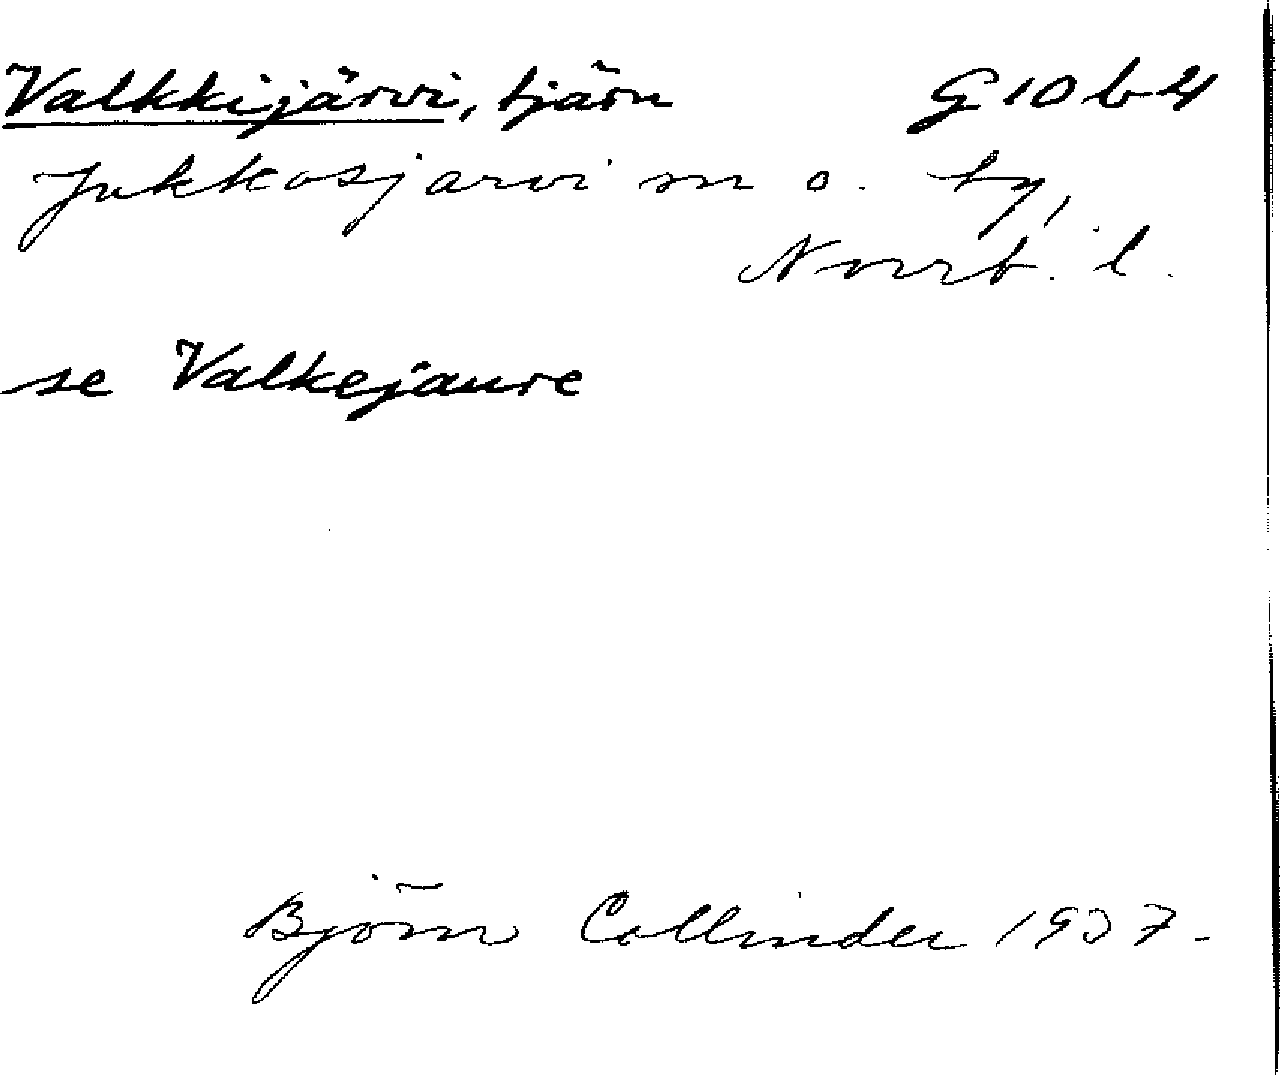 Valkkijärvi, tjärn G 10 b 4
Jukkasjärvi sn o. by,
Norrb. l.
se Valkejaure
Björn Collinder 1937-